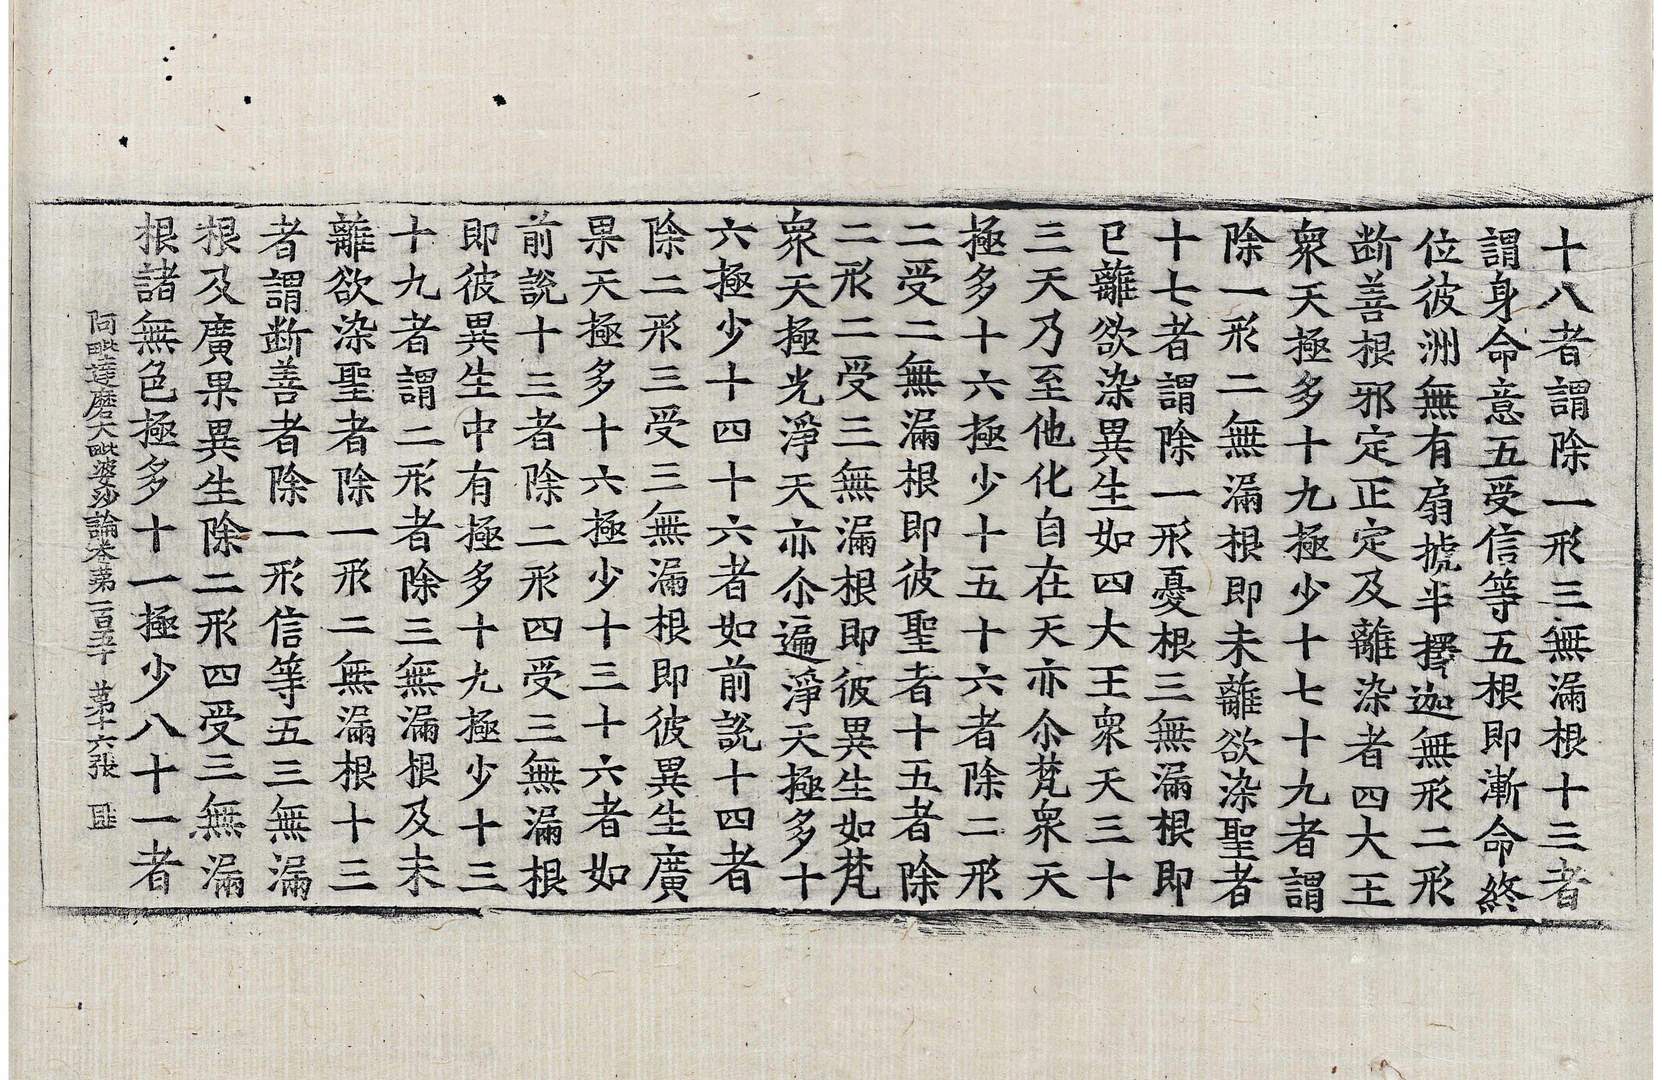 十八者謂除一形三無漏根十三者
謂身命意五受信等五根即漸命終
位彼洲無有扇搋半擇迦無形二形
断善根邪定正定及離染者四大王
衆天極多十九極少十七十九者謂
除一形二無漏根即未離欲染聖者
十七者謂除一形憂根三無漏根即
已離欲染異生如四大王衆天三十
三天乃至他化自在天亦尒梵衆天
極多十六極少十五十六者除二形
二受二無漏根即彼聖者十五者除
二形二受三無漏根即彼異生如梵
衆天極光淨天亦尒遍淨天極多十
六極少十四十六者如前說十四者
除二形三受三無漏根即彼異生廣
果天極多十六極少十三十六者如
前說十三者除二形四受三無漏根
即彼異生中有極多十九極少十三
十九者謂二形者除三無漏根及未
離欲染聖者除一形二無漏根十三
者謂断善者除一形信等五三無漏
根及廣果異生除二形四受三無漏
根諸無色極多十一極少八十一者
阿毗達磨大毗婆沙論卷第一百五十 第十六張 匪